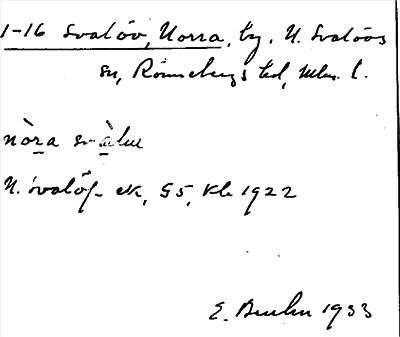 1-16 Svalöv, Norra, by, N. Svalövs
sn, Rönnebergs hd, Mlm. l.
nòra svàlur
N. Svalöf- ek, G5, Kb 1922
E. Bruhn 1933